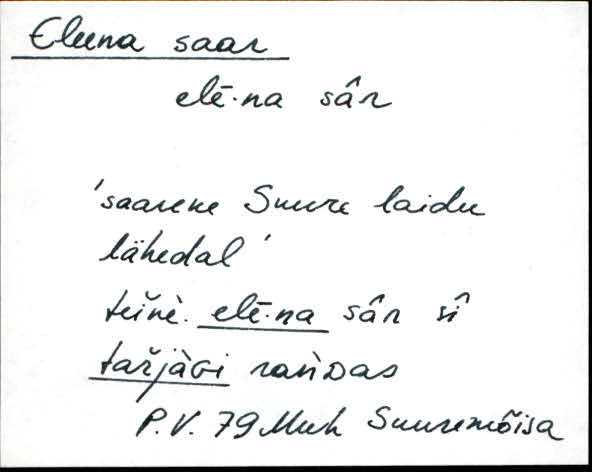 Eleena saar
elē·na sâr
'saareke Suure laidu
lähedal'
teiǹè. elē·na sâr sî
tarjàɢi rańDas
P.V. 79 Muh Suuremõisa